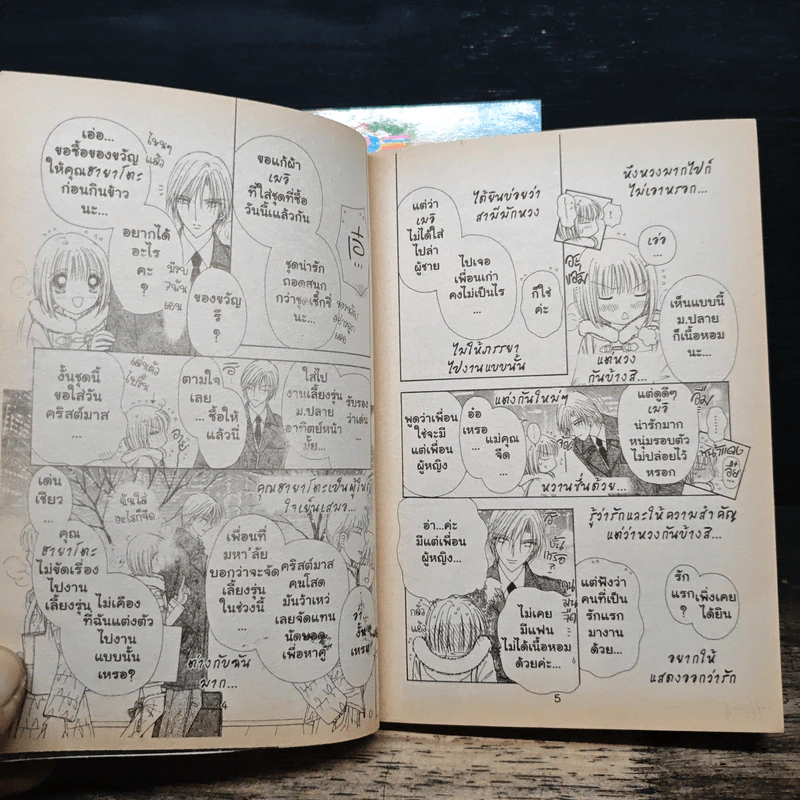 เอ่อ...
ขอซื้อของขวัญ
ให้คุณฮายาโตะ
ก่อนกินข้าว
นะ...
ไหนๆ
แล้ว
ขอแก้ผ้า
เมจิ
ที่ใส่ชุดที่ซื้อ
วันนี้แล้วกัน
ชุดน่ารัก
ถอดสนุก
กว่าชุดเซ็กซี่
นะ...
อยากได้
อะไร
คะ
?
ของขวัญ
รึ
?
งั้นชุดนี้
ขอใส่วัน
คริสต์มาส
...
ตามใจ
เลย
... ซื้อให้
แล้วนี่
ใส่ไป
งานเลี้ยงรุ่น
ม.ปลาย
อาทิตย์หน้า
มั้ย...
รับรอง
ว่าเด่น
...
เด่น
เชียว
...
ฉันใส่
อะไรก็จืด
คุณฮายาโตะเป็นผู้ใหญ่
ใจเย็นเสมอ...
คุณ
ฮายาโตะ
ไม่ขัดเรื่อง
ไปงาน
เลี้ยงรุ่น
...
ไม่เคือง
ที่ฉันแต่งตัว
ไปงาน
แบบนั้น
เหรอ?
เพื่อนที่
มหา'ลัย
บอกว่าจะจัด
เลี้ยงรุ่น
ในช่วงนี้
...
คริสต์มาส
คนโสด
มันว้าเหว่
เลยจัดแทน
นัดบอด
เพื่อหาคู่
ต่างกับฉัน
มาก...
4
ได้ยินบ่อยว่า
สามีมักหวง
แต่ว่า
เมจิ
ไม่ได้ใส่
ไปล่า
ผู้ชาย
...
ไปเจอ
เพื่อนเก่า
คงไม่เป็นไร
...
ก็ใช่
ค่ะ
ไม่ให้ภรรยา
ไปงานแบบนั้น
หึงหวงมากไปก็
ไม่เอาหรอก...
เอ่อ
...
เห็นแบบนี้
ม.ปลาย
ก็เนื้อหอม
นะ...
แต่หวง
กันบ้างสิ...
แต่งกันใหม่ๆ
พูดว่าเพื่อน
ใช่จะมี
แต่เพื่อน
ผู้หญิง
อ๋อ
เหรอ
...
แม่คุณ
จืด
...
อืม
แต่ดูดีๆ
เมจิ
น่ารักมาก
หนุ่มรอบตัว
ไม่ปล่อยไว้
หรอก
หน้าแดง
หวานชื่นด้วย...
อ๋า...ค่ะ
มีแต่เพื่อน
ผู้หญิง...
งั้น
เหรอ
?
ไม่เคย
มีแฟน
ไม่ได้เนื้อหอม
ด้วยค่ะ...
รู้ว่ารักและให้ความสำคัญ
แต่ว่าหวงกันบ้างสิ...
แต่ฟังว่า
คนที่เป็น
รักแรก
มางาน
ด้วย...
รัก
แรก
?
เพิ่งเคย
ได้ยิน
อยากให้
แสดงออกว่ารัก
5